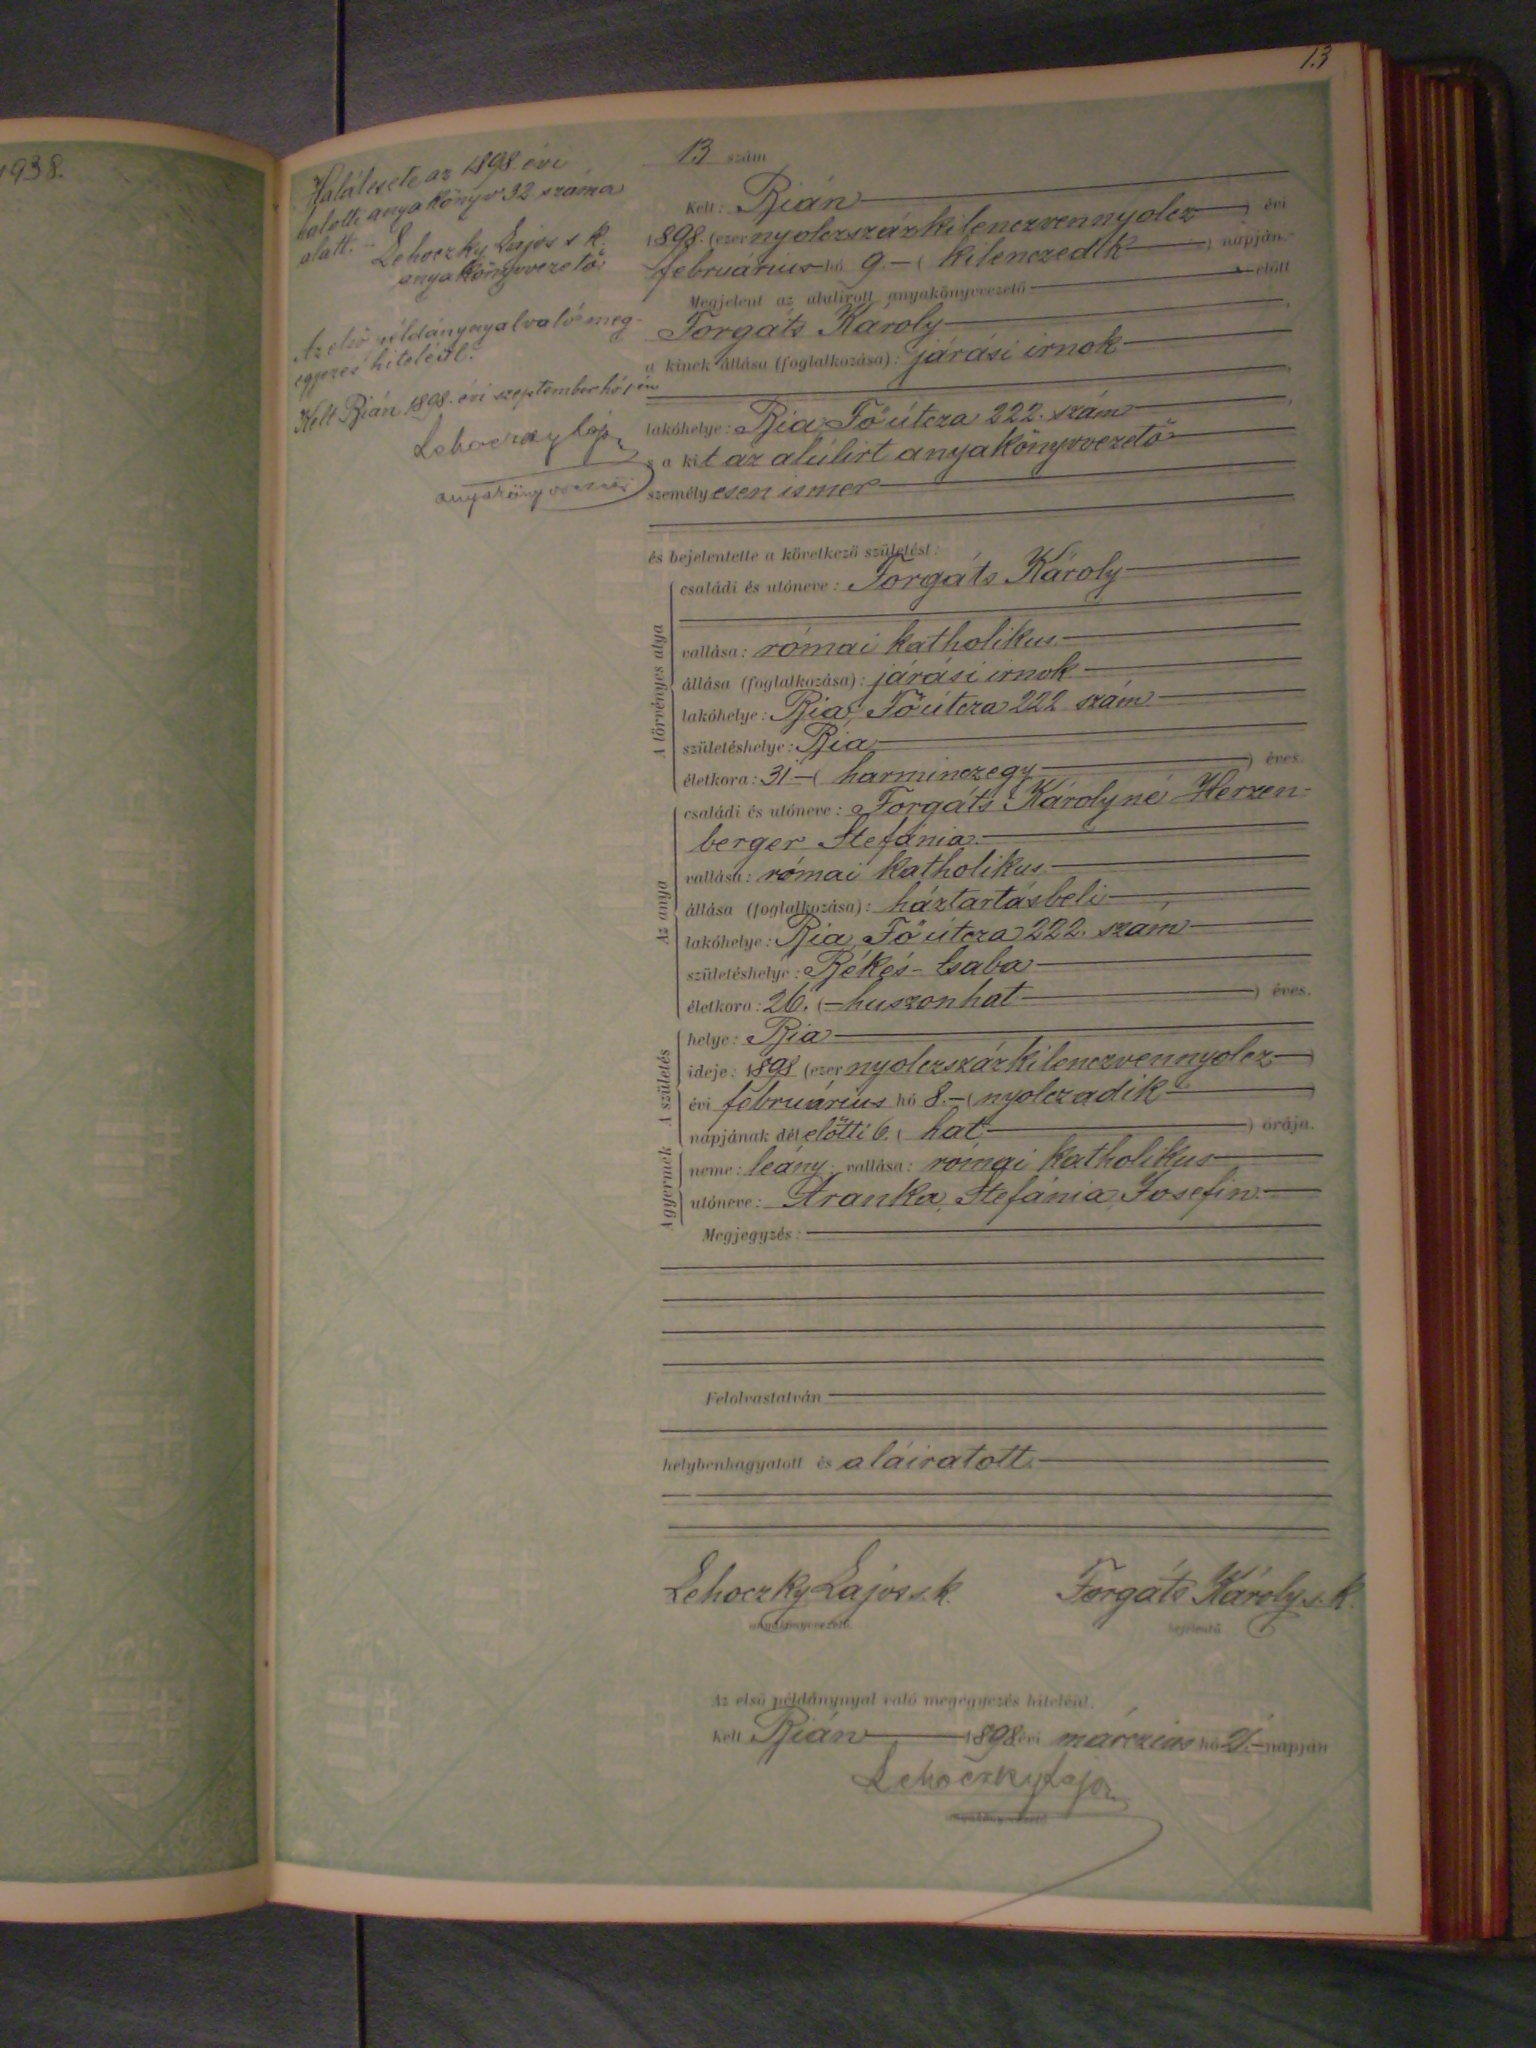 1938.
13
Halálesete az 1898 évi
halotti anyakönyv 32 száma
alatt. - Lehoczky Lajos s k.
anyakönyvvezető
Az első példánynyal való meg-
egyezés hiteléül.
Kelt Bián 1898. évi szeptember hó én
Lehoczky Lajos
anyakönyvvezető
13 szám
Kelt: Bián
1898. (ezer nyolczszázkilenczvennyolcz) évi
februárius hó 9.- (kilenczedik) napján.
Megjelent az alulirott anyakönyvvezető előtt
Forgáts Károly
a kinek állása (foglalkozása): járási irnok
lakóhelye: Bia Fő útcza 222. szám
s a kit az alúlirt anyakönyvvezető
személyesen ismer
és bejelentette a következő születést:
A törvényes atya
családi és utóneve: Forgáts Károly
vallása: római katholikus
állása (foglalkozása): járási irnok
lakóhelye: Bia, Fő útcza 222 szám
születéshelye: Bia
életkora: 31.- (harminczegy) éves.
Az anya
családi és utóneve: Forgáts Károlyné Herzen-
berger Stefánia
vallása: római katholikus
állása (foglalkozása): háztartásbeli
lakóhelye: Bia, Fő útcza 222. szám
születéshelye: Békés-Csaba
életkora: 26. (huszonhat) éves.
A születés
helye: Bia
ideje: 1898 (ezer nyolczszázkilenczvennyolcz)
évi februárius hó 8.- (nyolczadik)
napjának délelőtti 6. (hat) órája.
A gyermek
neme: leány; vallása: római katholikus
utóneve: Aranka, Stefánia, Josefin
Megjegyzés:
Felolvastatván
helybenhagyatott és aláiratott.
Lehoczky Lajos s. k. Forgáts Károly s. k.
anyakönyvvezető. bejelentő.
Az első példánynyal való megegyezés hiteléül.
Kelt Bián 1898 évi márczius hó 21.- napján
Lehoczky Lajos
anyakönyvvezető